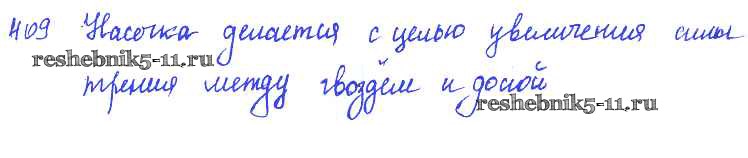 409 Насечка делается с целью увеличения силы
reshebnik5-11.ru
трения между гвоздём и доской
reshebnik5-11.ru